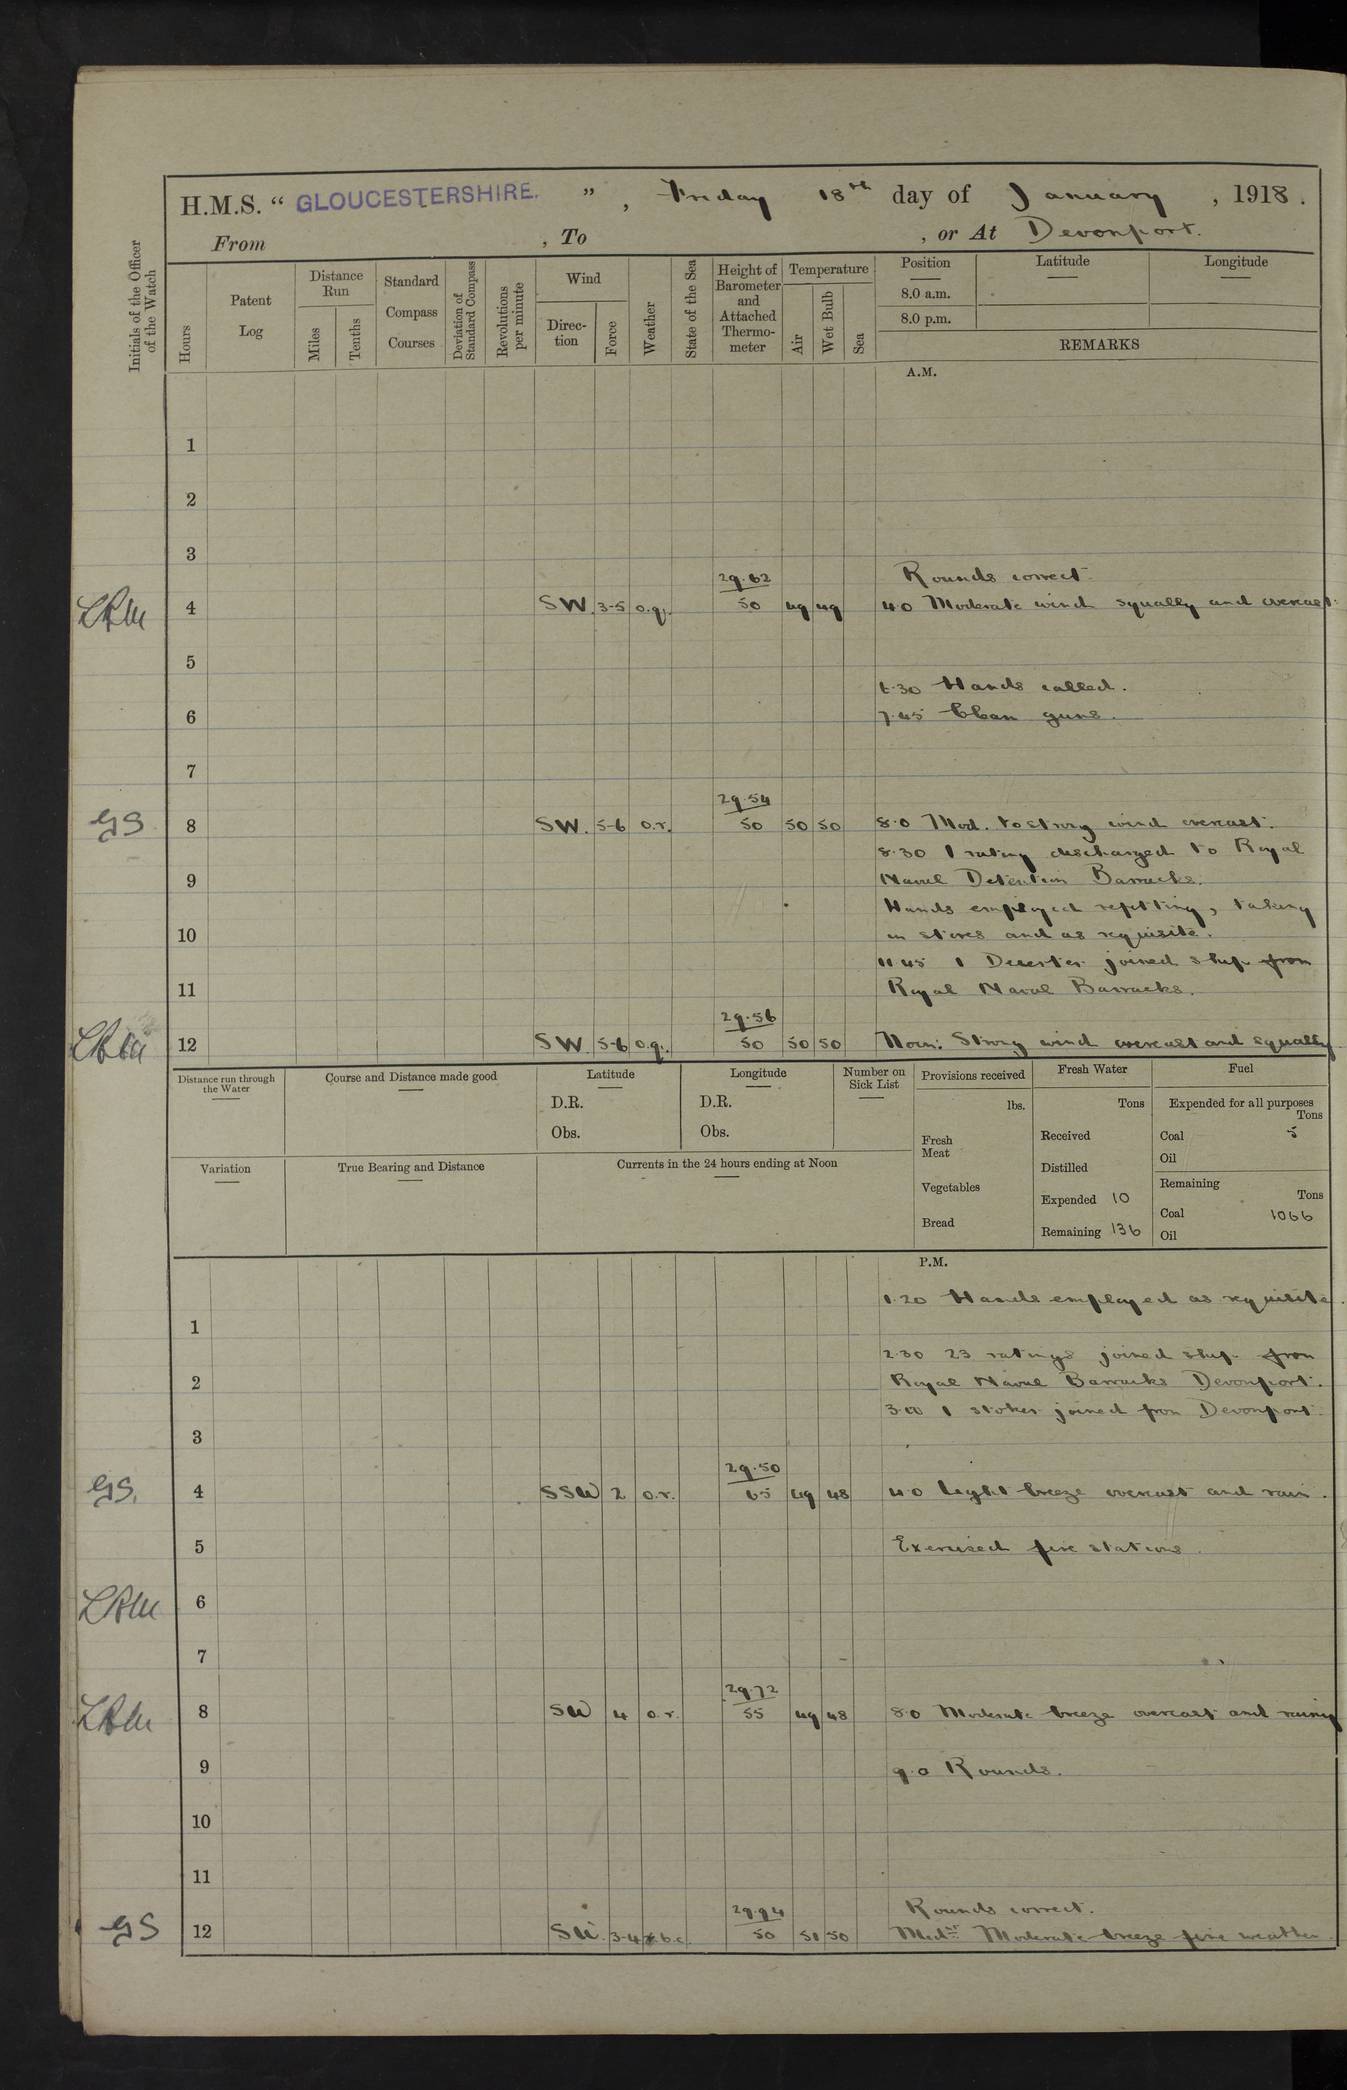 H.M.S. " GLOUCESTERSHIRE. ", Friday 18th day of January, 1918.
From , To , or At Devonport.
Initials of the Officer of the Watch
Hours
Patent Log
Distance Run
Miles
Tenths
Standard Compass Courses
Deviation of Standard Compass
Revolutions per minute
Wind
Direc-tion
Force
Weather
State of the Sea
Height of Barometer and Attached Thermo-meter
Temperature
Air
Wet Bulb
Sea
Position
8.0 a.m.
8.0 p.m.
Latitude
Longitude
REMARKS
A.M.
1
2
3
29.62 Rounds correct.
LRM 4 SW. 3-5 o.q. 50 49 49 4.0 Moderate wind squally and overcast.
5
6.30 Hands called.
6 7.45 Clean guns.
7
29.54
GS 8 SW. 5-6 o.r. 50 50 50 8.0 Mod. to strong wind overcast.
8.30 1 rating discharged to Royal
9 Naval Detention Barracks.
Hands employed refitting, taking
10 in stores and as requisite.
11.45 1 Deserter joined ship from
11 Royal Naval Barracks.
29.56
LRM 12 SW. 5-6 o.q. 50 50 50 Noon: Strong wind overcast and squally.
Distance run through the Water
Course and Distance made good
Latitude
D.R.
Obs.
Longitude
D.R.
Obs.
Number on Sick List
Provisions received
lbs.
Fresh Meat
Vegetables
Bread
Fresh Water
Tons
Received
Distilled
Expended 10
Remaining 136
Fuel
Expended for all purposes
Tons
Coal 5
Oil
Remaining
Tons
Coal 1066
Oil
Variation
True Bearing and Distance
Currents in the 24 hours ending at Noon
P.M.
1.20 Hands employed as requisite.
1
2.30 23 ratings joined ship from
2 Royal Naval Barracks Devonport.
3.00 1 stoker joined from Devonport.
3
29.50
GS. 4 SSW 2 o.r. 65 49 48 4.0 Light breeze overcast and rain.
5 Exercised fire stations.
LRM 6
7
29.72
LRM 8 SW 4 o.r. 55 49 48 8.0 Moderate breeze overcast and rainy
9 9.0 Rounds.
10
11
29.94 Rounds correct.
GS 12 SW. 3-4 b.c. 50 51 50 Midt Moderate breeze fine weather.